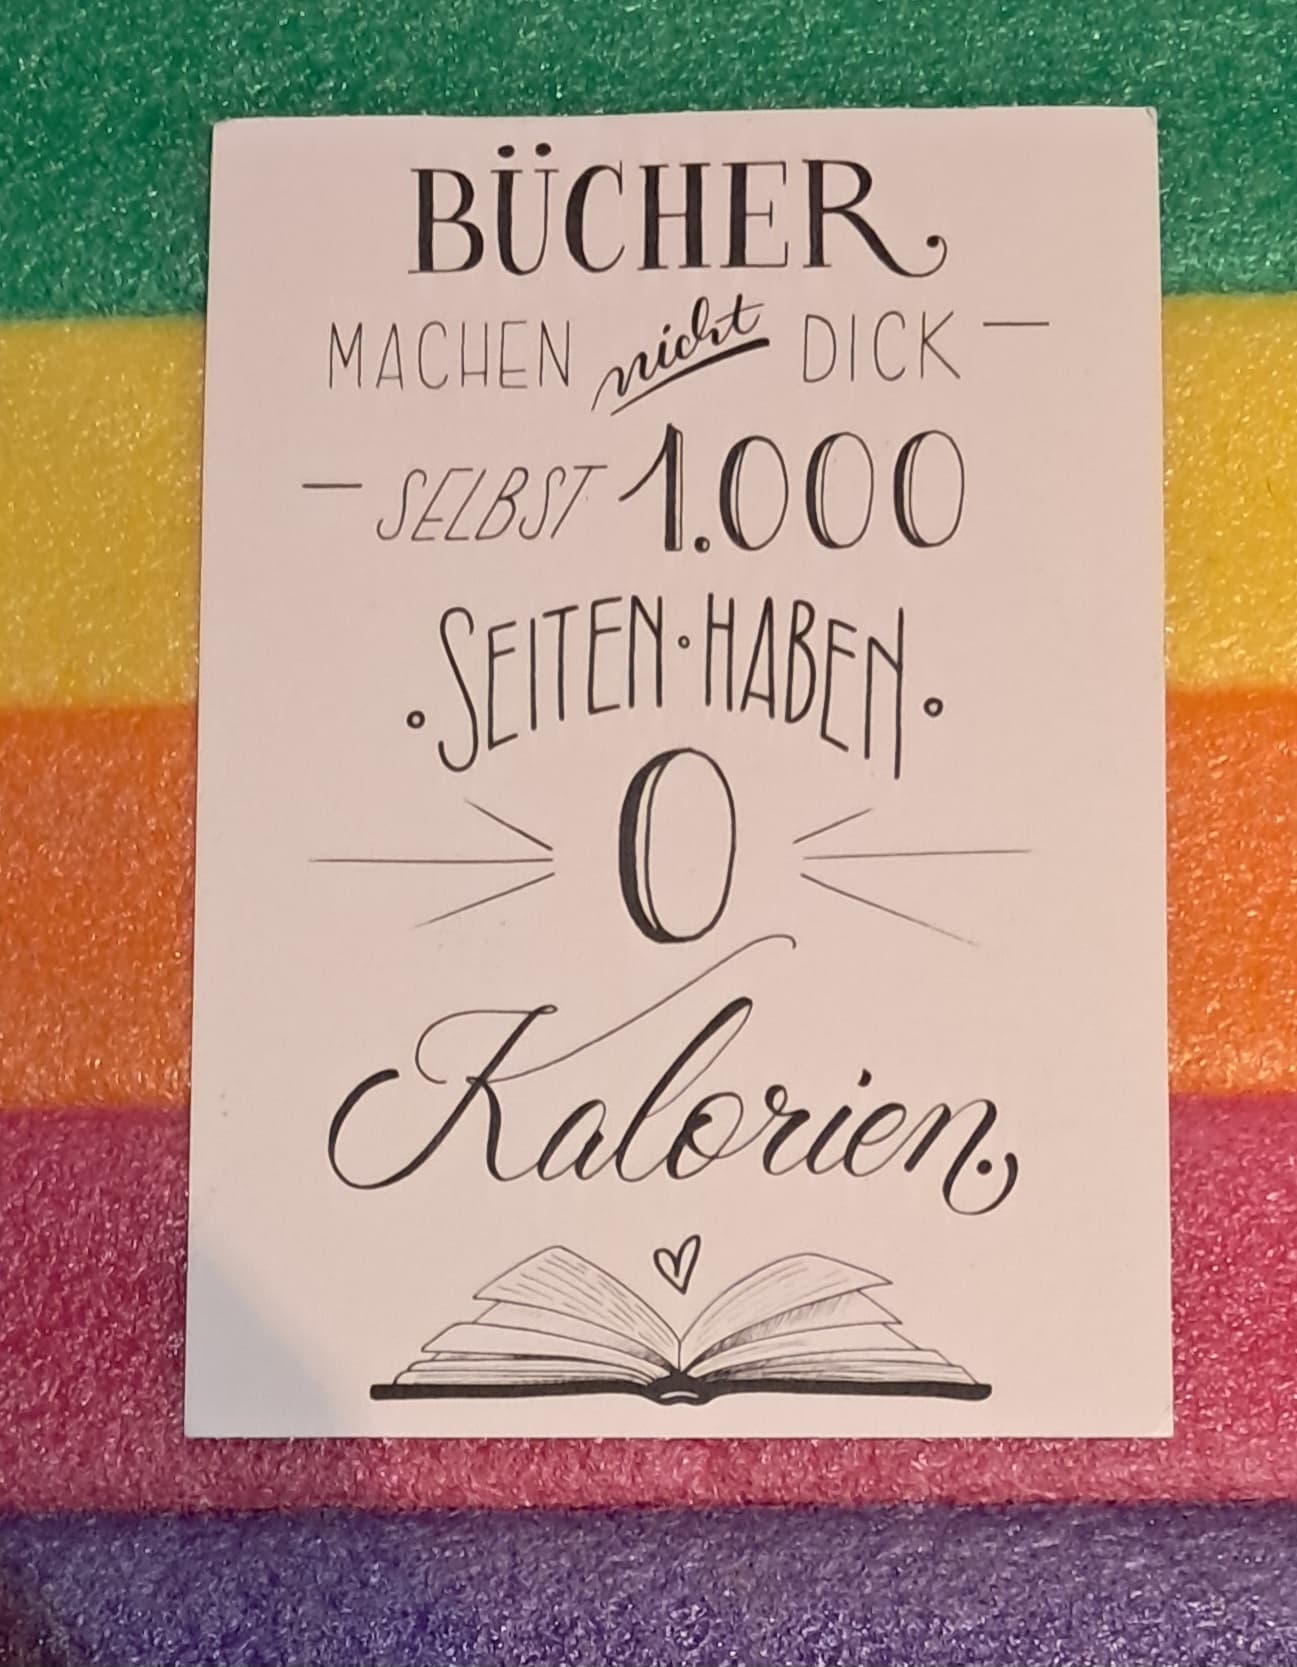 BÜCHER
MACHEN nicht DICK —
— SELBST 1.000
• SEITEN • HABEN •
0
Kalorien.